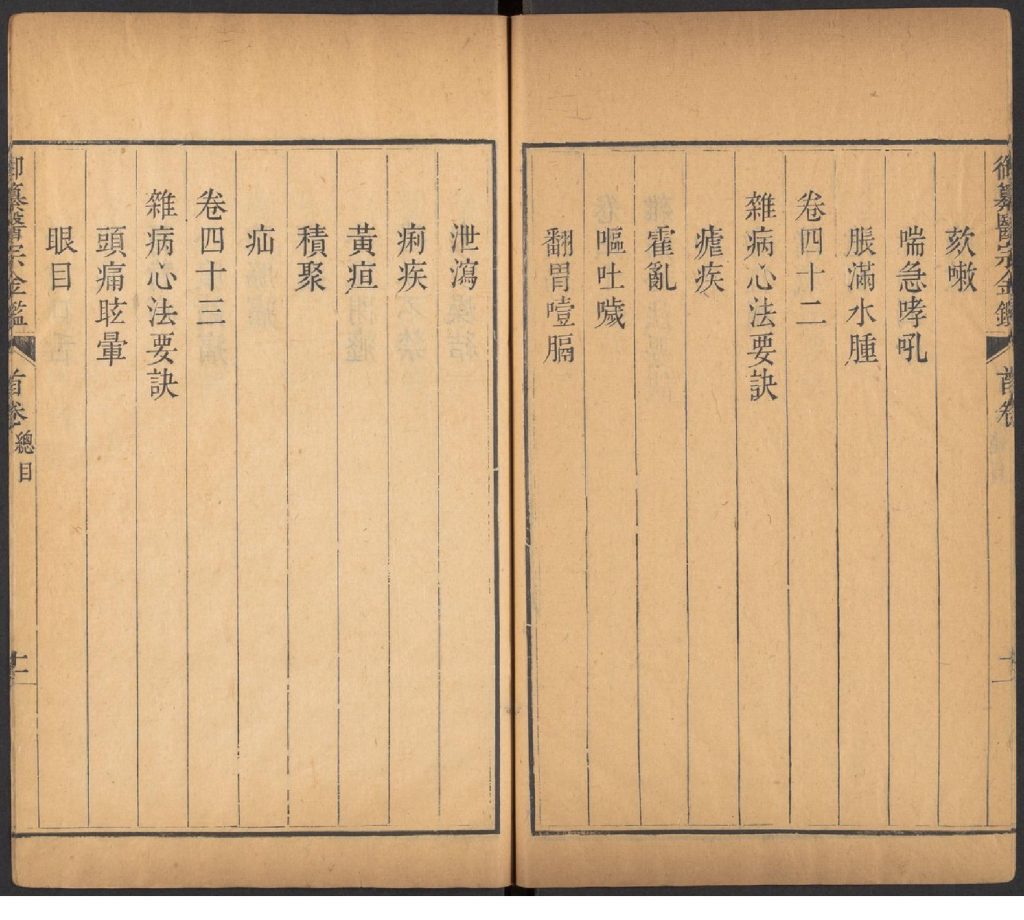 御纂醫宗金鑑 首卷
欬嗽
喘急哮吼
脹滿水腫
卷四十二
雜病心法要訣
瘧疾
霍亂
嘔吐噦
翻胃噎膈
泄瀉
痢疾
黃疸
積聚
疝
卷四十三
雜病心法要訣
頭痛眩暈
眼目
御纂醫宗金鑑 首卷 總目